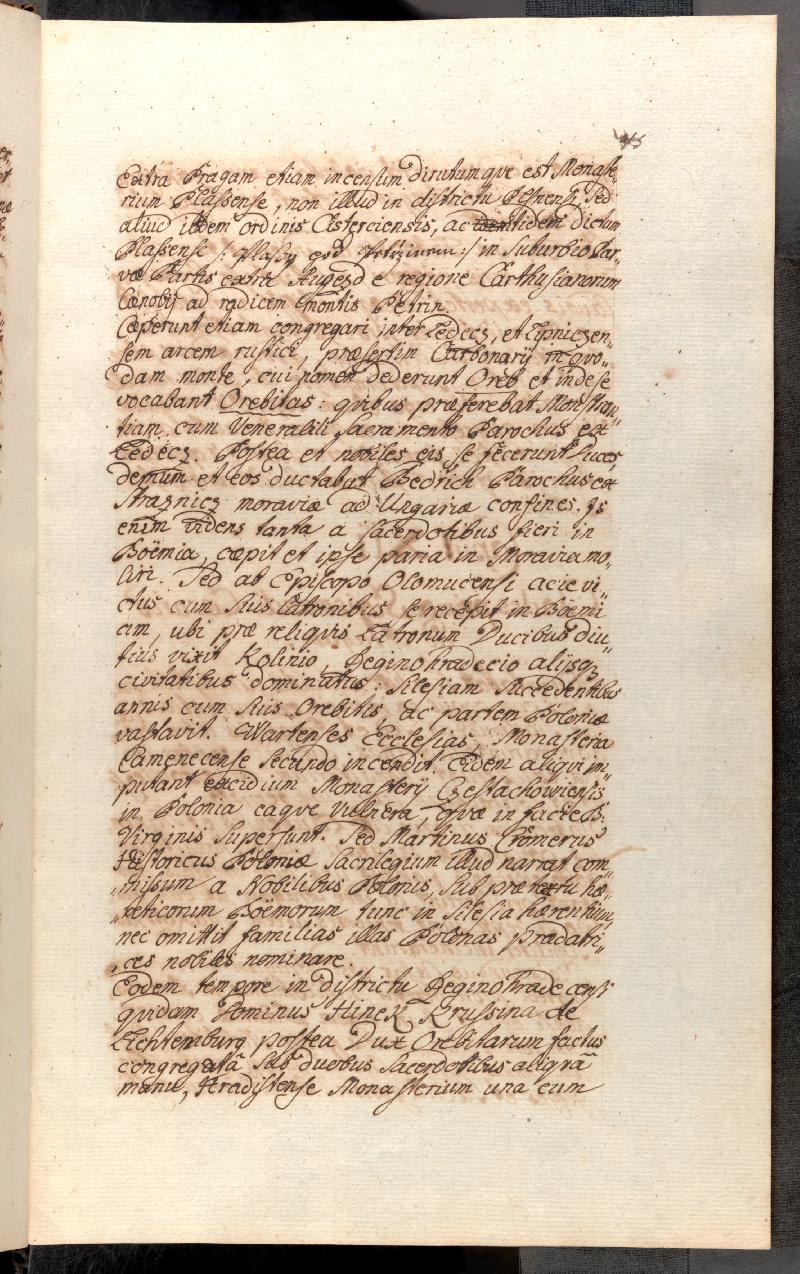 Extra Pragam etiam incensum dirutumque est Monaste
rium Plassense, non illud in districtu Pelsnensi, sed
aliud itidem ordinis Cisterciensis, ac itidem dictum
Plassense /: :/ in suburbio Par„
væ Partis extra Augezd e regione Carthusianorum
Cænobij ad radicem montis Petrin.
Cæperunt etiam congregari inter Ledecz, et Lipniczen„
sem arcem rustici, præsertim Carbonarij in quo„
dam monte, cui nomen dederunt Oreb et inde se
vocabant Orebitas: quibus præferebat Monstran„
tiam cum Venerabili Sacramento Parochus ex
Ledecz. Postea et nobiles eis se fecerunt Duces,
demum et eos ductabat Bedrich Parochus ex
Straznicz moraviæ ad Ungariæ confines. Is
enim videns tanta a sacerdotibus fieri in
Boëmia, cæpit et ipse paria in Moravia mo„
liri. Sed ab Episcopo Olomucensi acie vi„
ctus cum suis latronibus se recepit in Boëmi
am, ubi præ reliquis Latronum Ducibus diu„
tius vixit Kolinio, ReginoHradecio alijsq;
civitatibus dominatus: Silesiam succedentibus
annis cum suis Orebitis, ac partem Poloniæ
vastavit. Wartenses Ecclesias, Monasteria
Camenecense secundo incendit. Eidem aliqui im„
putant excidium Monasterij Czestachowiensis
in Polonia eaque vulnera, quæ in facie B:
Virginis supersunt. Sed Martinus Cromerus
Historicus Poloniæ sacrilegium illud narrat com„
„missum a Nobilibus Polonis, sub prætextu hæ„
„reticorum Boëmorum tunc in Silesia hærentium,
nec omittit familias illas Polonas prædatri„
„ces nobiles nominare.
Eodem tempore in districtu ReginoHradecensi
quidam Dominus Hinek Krussina de
Lichtemburg postea Dux Orebitarum factus
congregatâ sub duobus sacerdotibus aliquâ
manu, Hradistense Monasterium una cum